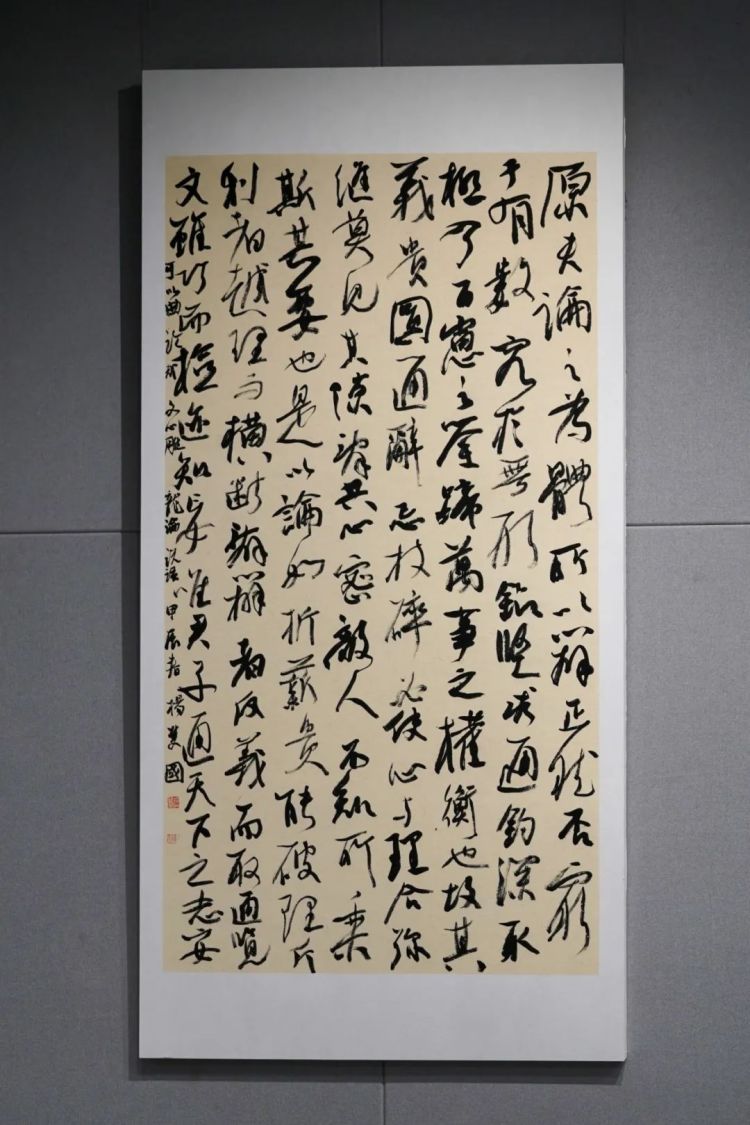 原夫論之為體所以辨正然否窮
于有數究於無形鑽堅求通鈎深取
極乃百慮之筌蹄萬事之權衡也故其
義貴圓通辭忌枝碎必使心与理合弥
縫莫見其隙辞共心密敵人不知所乘
斯其要也是以論如析薪貴能破理斤
利者越理而橫斷辞辨者反義而取通覽
文雖巧而檢迹知妄唯君子通天下之志安
可以曲論哉文心雕龍論說語甲辰春楊國